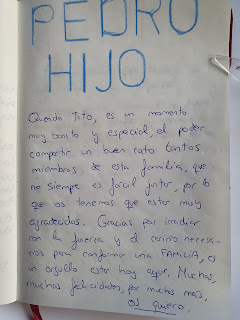 PEDRO
HIJO
Querido Tito, es un momento
muy bonito y especial, el poder
compartir un buen rato tantos
miembros de esta familia, que
no siempre es fácil juntar, por lo
que os tenemos que estar muy
agradecidos. Gracias por irradiar
con la fuerza y el cariño necesa-
rios para conformar una FAMILIA, es
un orgullo estar hoy aquí. Muchas,
muchas felicidades, por muchos más,
os quiero.